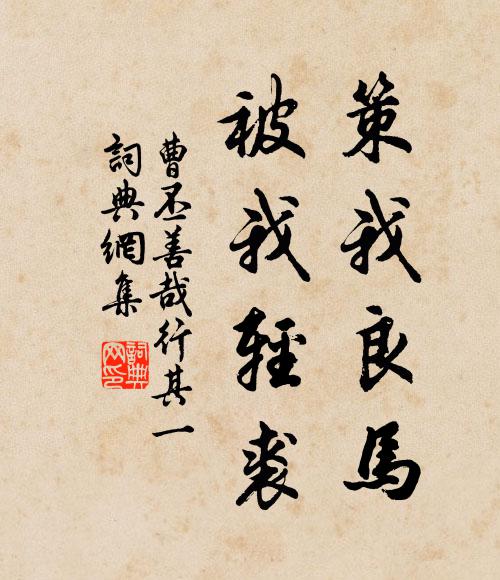 策我良馬
被我輕裘
曹丕善哉行其一
詞典網集
詞典網印